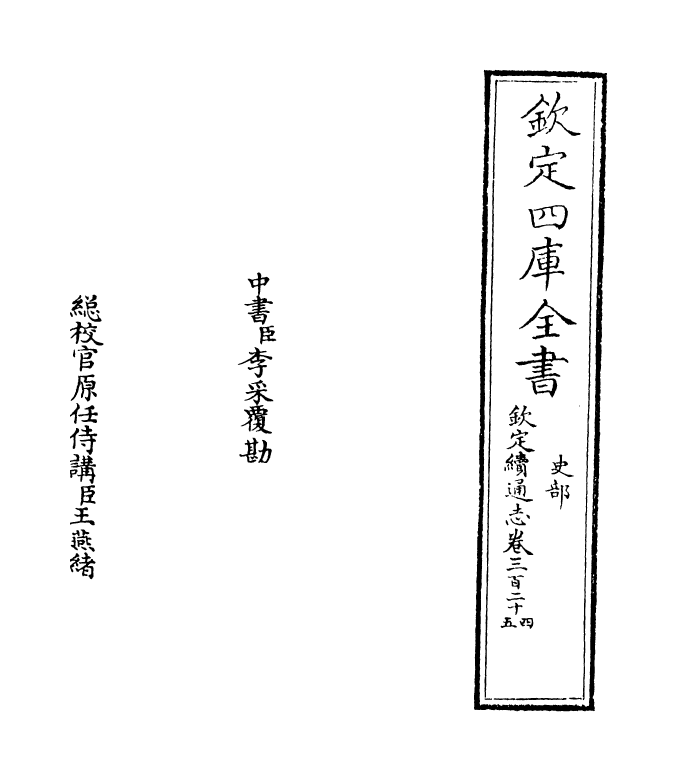 欽定四庫全書
史部
欽定續通志卷三百二十四五
中書臣李采覆勘
總校官原任侍講臣王燕緒